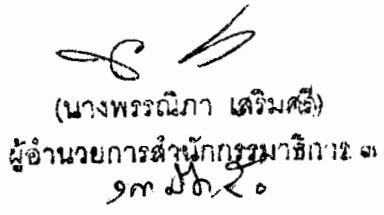 (นางพรรณิภา เสริมศรี)
ผู้อำนวยการสำนักกรรมาธิการ ๓
๑๓ มี.ค. ๕๐